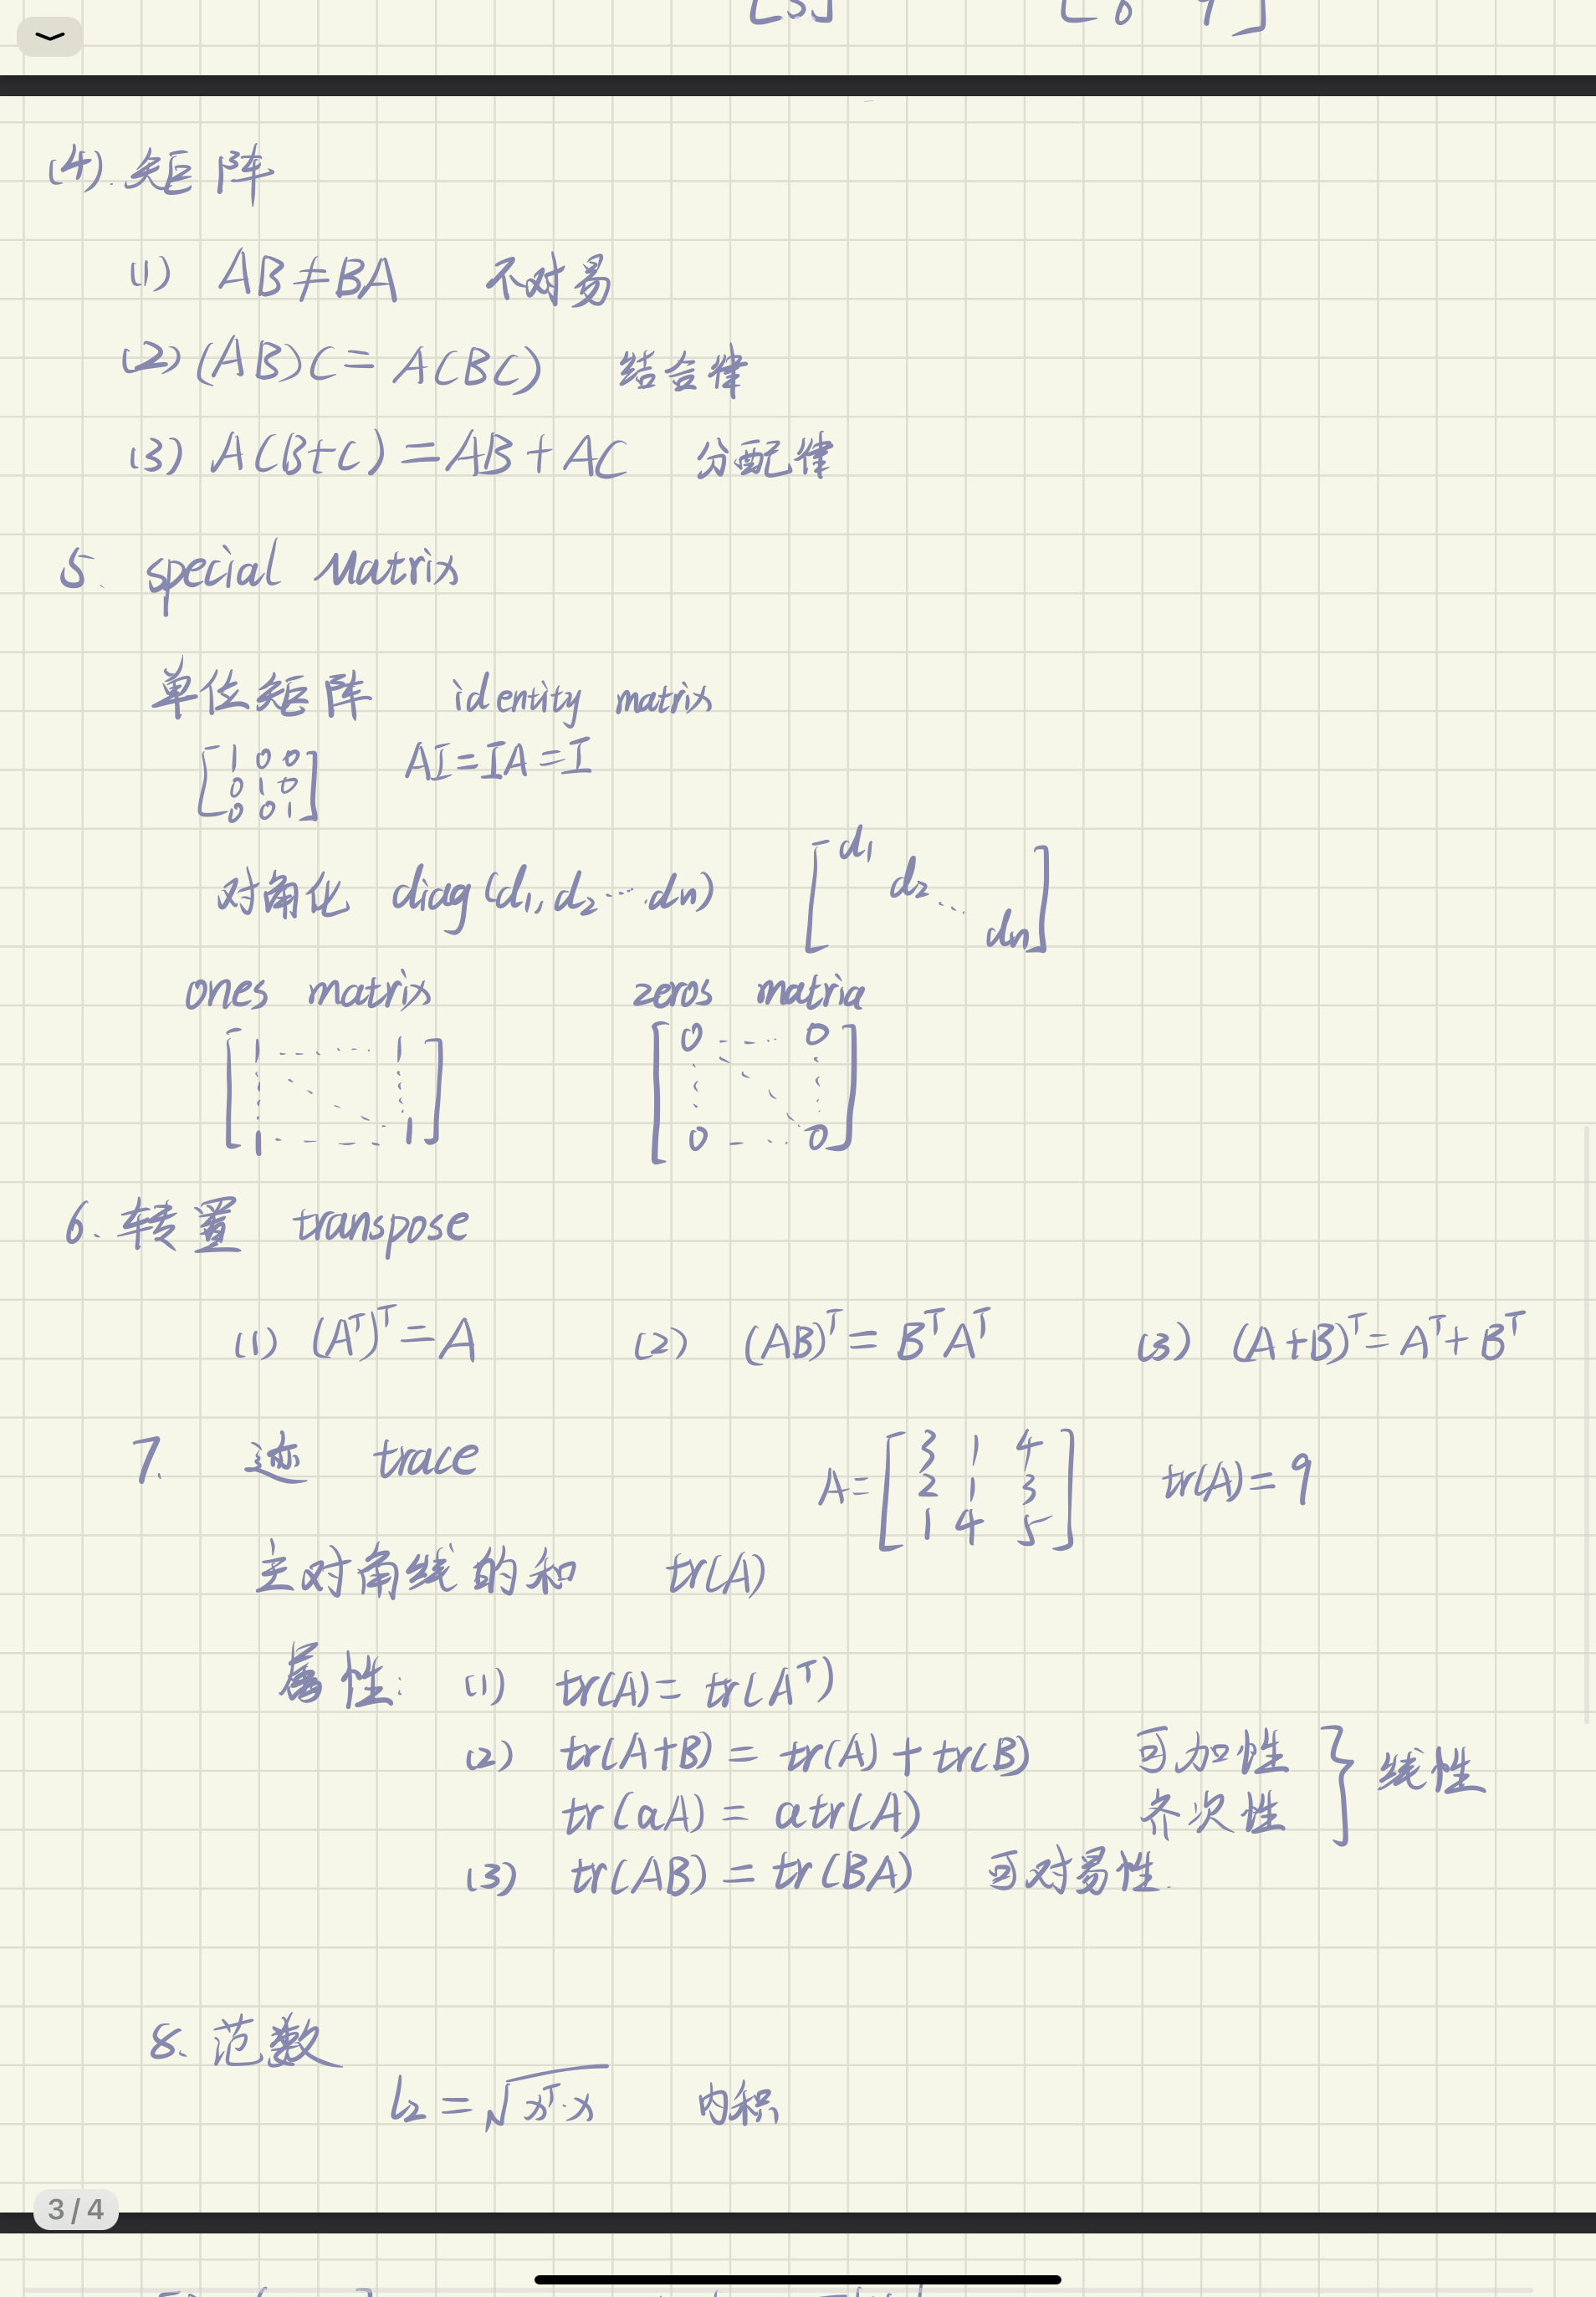 (4). 矩阵
(1) AB≠BA 不对易
(2) (AB)C = A(BC) 结合律
(3) A(B+C) = AB + AC 分配律
5. special Matrix
单位矩阵 identity matrix
[1 0 0
0 1 0
0 0 1] AI=IA=I
对角化 diag(d₁, d₂ ⋯ dn) [d₁ d₂ ⋱ dn]
ones matrix zeros matrix
[1 ⋯ 1
⋮ ⋱ ⋮
1 ⋯ 1] [0 ⋯ 0
⋮ ⋱ ⋮
0 ⋯ 0]
6. 转置 transpose
(1) (Aᵀ)ᵀ = A (2) (AB)ᵀ = BᵀAᵀ (3) (A+B)ᵀ = Aᵀ + Bᵀ
7. 迹 trace A= [3 1 4
2 1 3
1 4 5] tr(A) = 9
主对角线的和 tr(A)
属性: (1) tr(A) = tr(Aᵀ)
(2) tr(A+B) = tr(A) + tr(B) 可加性
tr(aA) = atr(A) 齐次性 } 线性
(3) tr(AB) = tr(BA) 可对易性.
8. 范数
L₂ = √xᵀ·x 内积
3 / 4